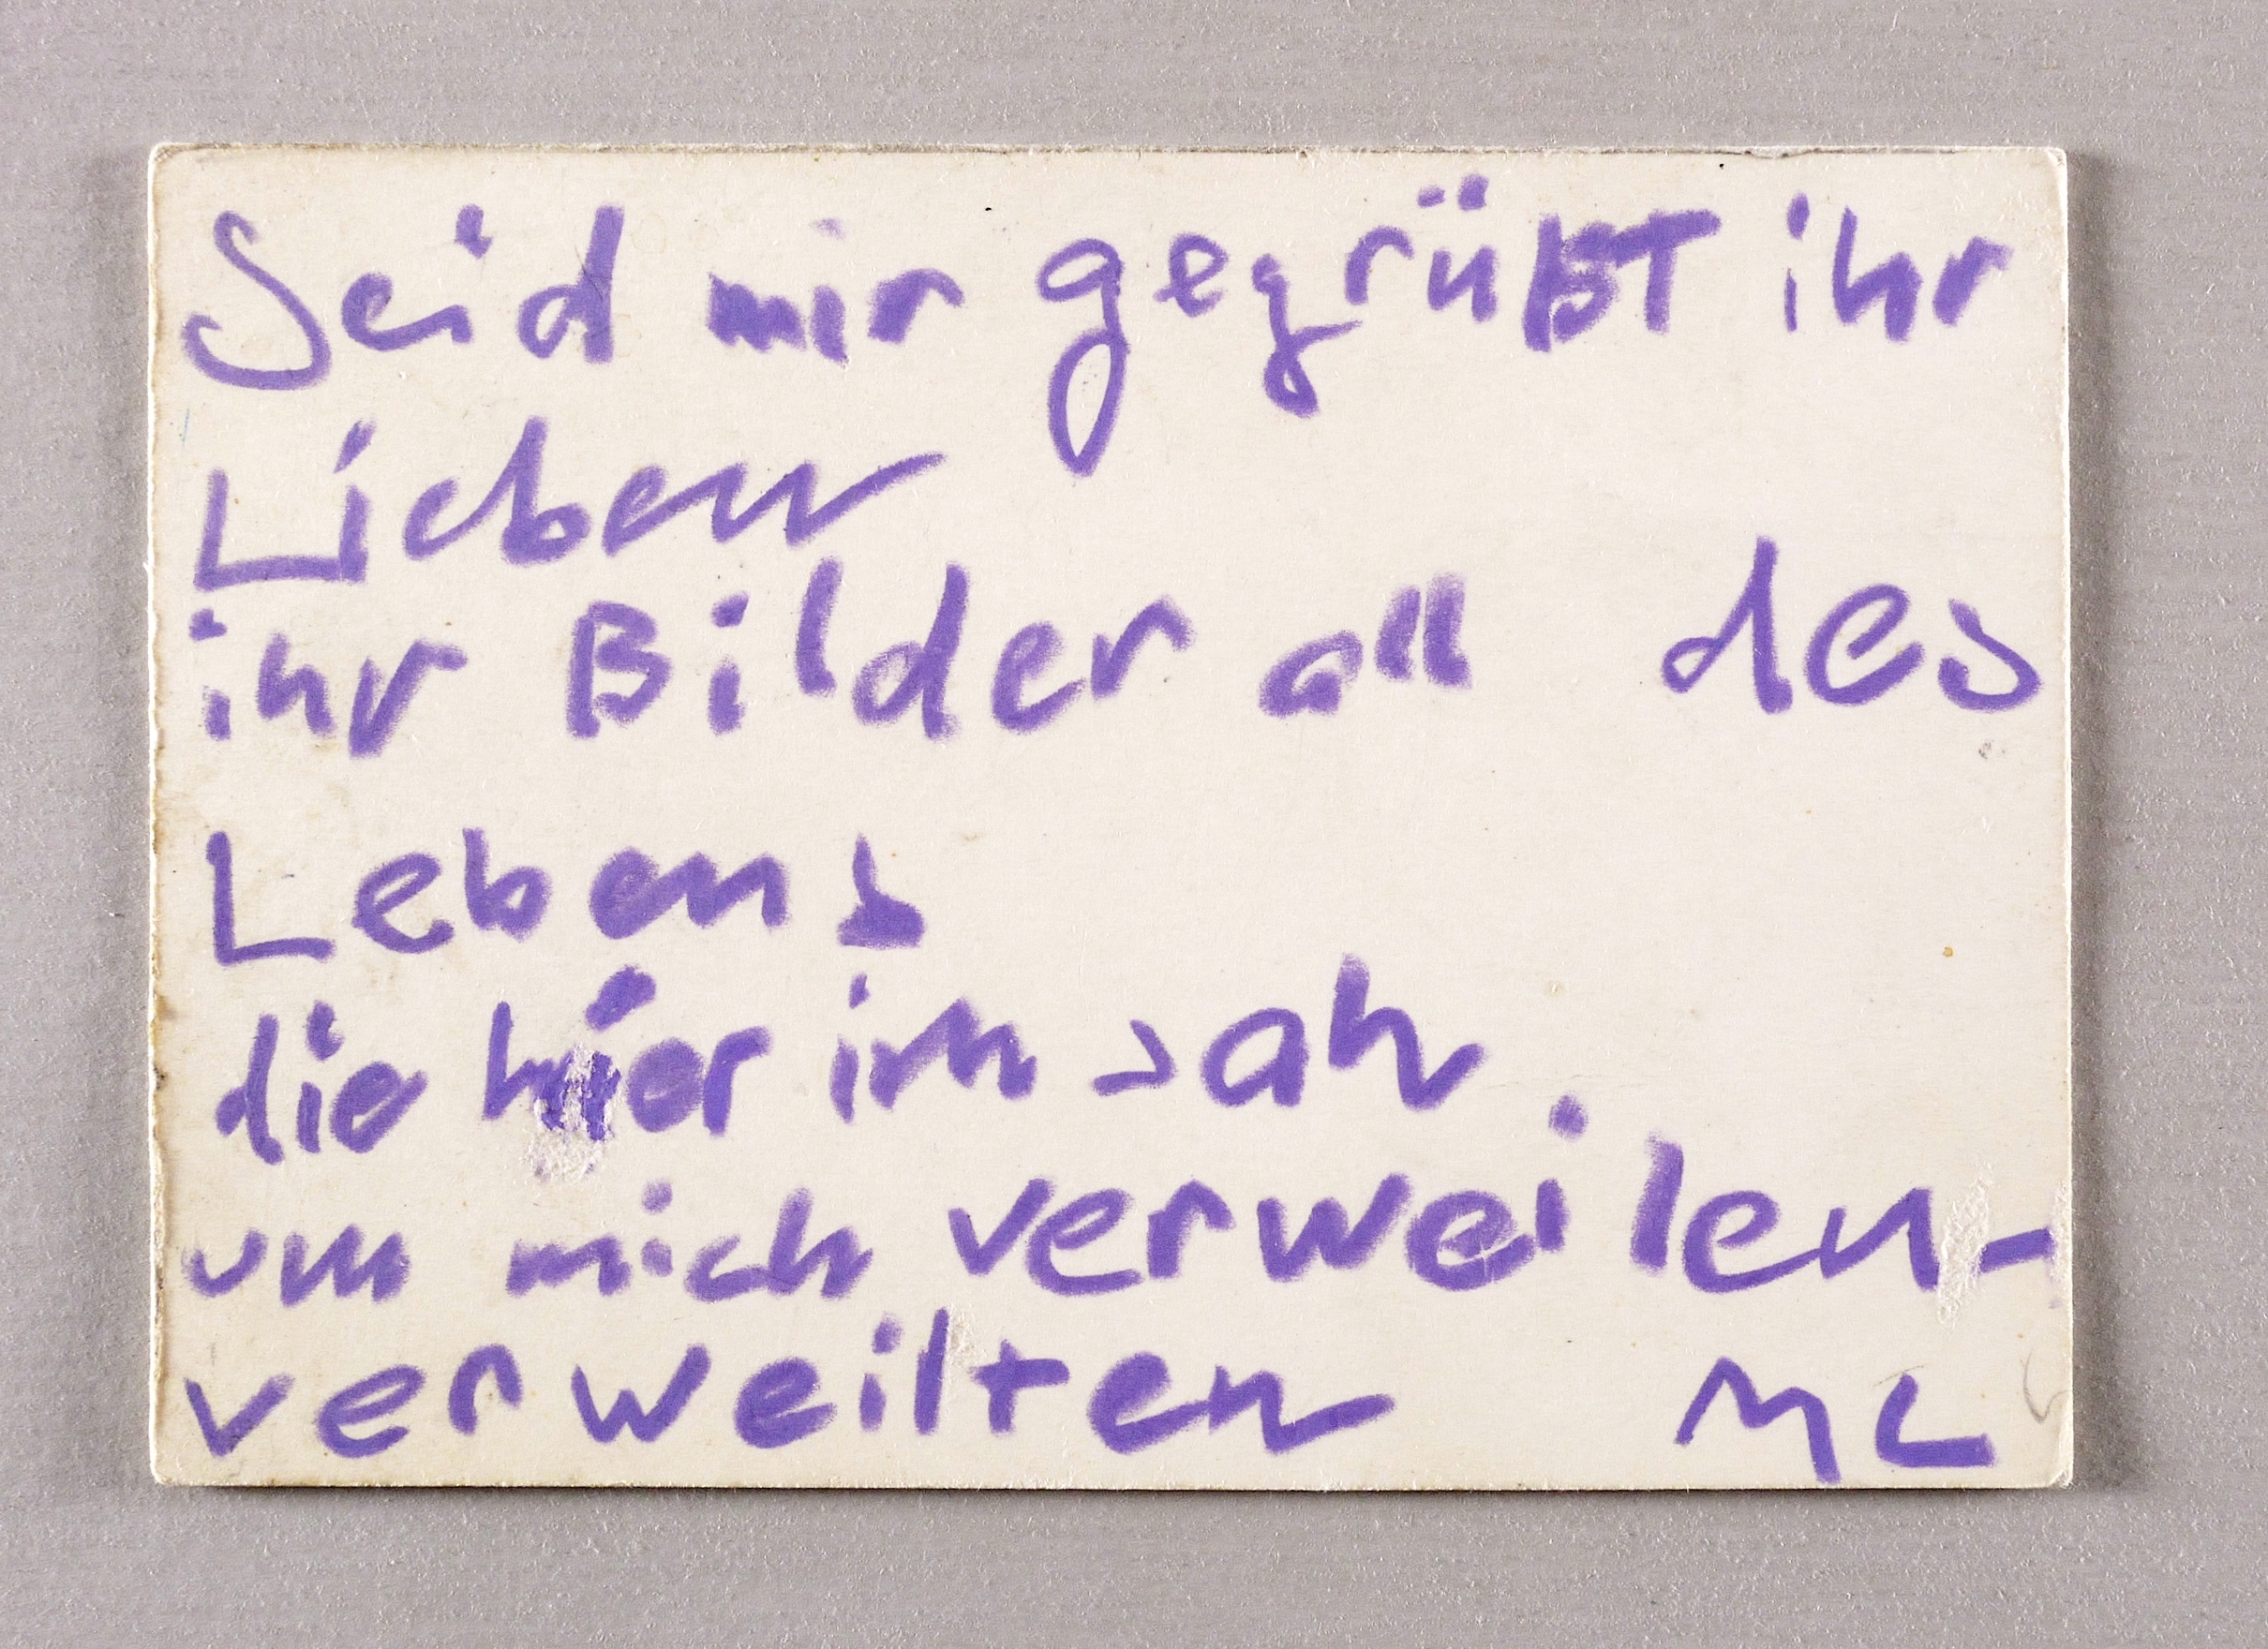 Seid mir gegrüßt ihr
Lieben
ihr Bilder all des
Lebens
die hier im
um mich verweilen-
verweilten ML